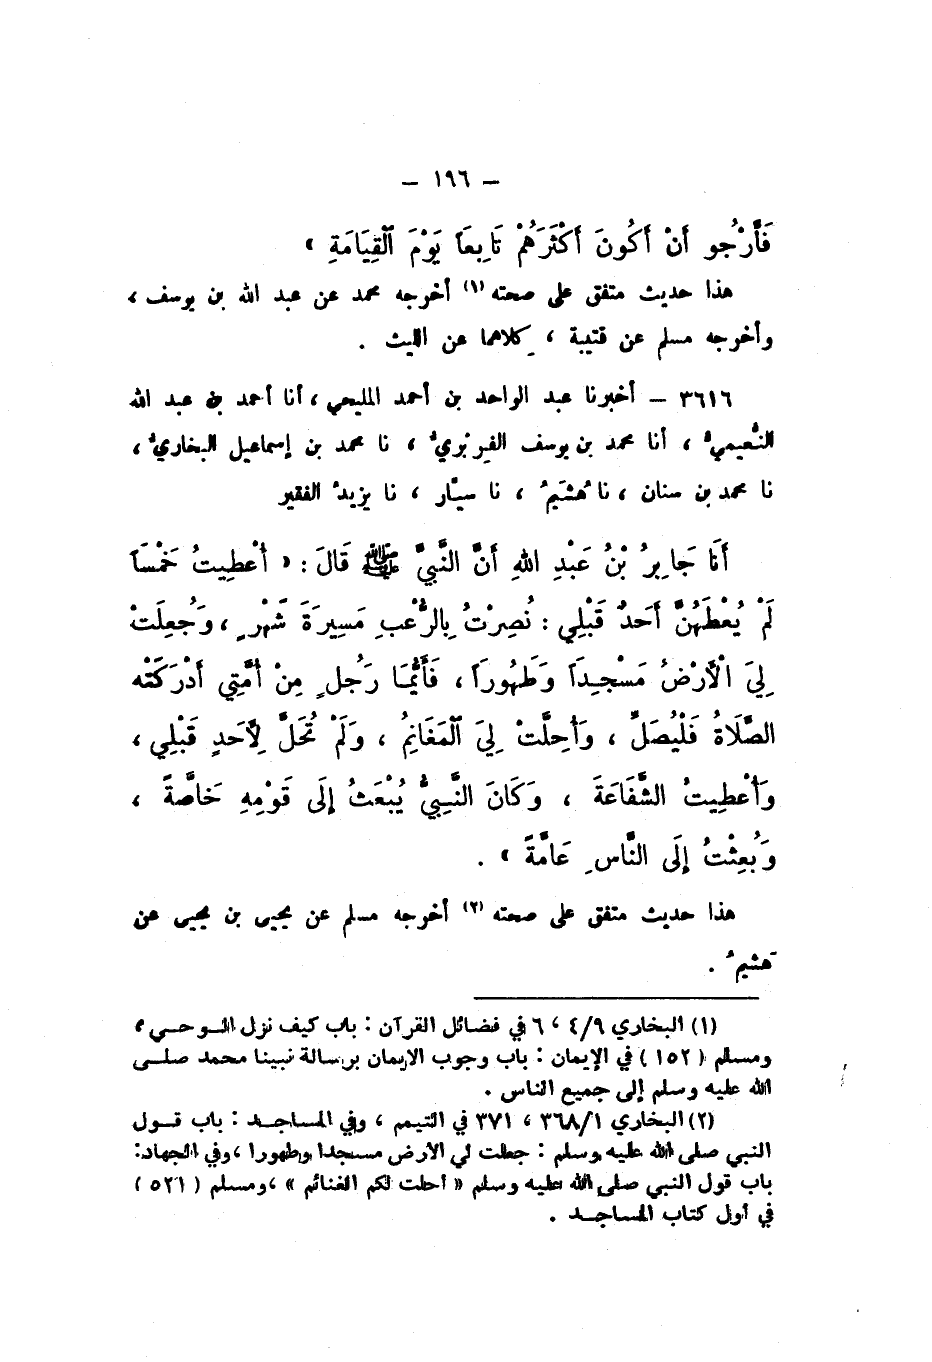 – ١٩٦ –
فَأَرْجُو أَنْ أَكُونَ أَكْثَرَهُمْ تَابِعَاً يَوْمَ ٱلْقِيَامَةِ »
هذا حديث متفق على صحته (١) أخرجه محمد عن عبد الله بن يوسف ،
وأخرجه مسلم عن قتيبة ، كلاهما عن الليث .
٣٦١٦ – أخبرنا عبد الواحد بن أحمد المليحي ، أنا أحمد بن عبد الله
النُّعيميُّ ، أنا محمد بن يوسف الفِربْريُّ ، نا محمد بن إسماعيل البخاريُّ ،
نا محمد بن سنان ، نا هُشَيمٌ ، نا سيَّار ، نا يزيدُ الفقير
أَنَا جَابِرُ بْنُ عَبْدِ اللهِ أَنَّ النَّبِيَّ ﷺ قَالَ : « أُعْطِيتُ خَمْسَاً
لَمْ يُعْطَهُنَّ أَحَدٌ قَبْلِي : نُصِرْتُ بِالرُّعْبِ مَسِيرَةَ شَهْرٍ ، وَجُعِلَتْ
لِيَ الْأَرْضُ مَسْجِدَاً وَطَهُورَاً ، فَأَيُّمَا رَجُلٍ مِنْ أُمَّتِي أَدْرَكَتْه
الصَّلَاةُ فَلْيُصَلِّ ، وَأُحِلَّتْ لِيَ ٱلْمَغَانِمُ ، وَلَمْ تُحَلَّ لِأَحَدٍ قَبْلِي ،
وَأُعْطِيتُ الشَّفَاعَةَ ، وَكَانَ النَّبِيُّ يُبْعَثُ إِلَى قَوْمِهِ خَاصَّةً ،
وَبُعِثْتُ إِلَى النَّاسِ عَامَّةً » .
هذا حديث متفق على صحته (٢) أخرجه مسلم عن يحيى بن يحيى عن
هشيمٍ .
(١) البخاري ٤/٩ ، ٦ في فضائل القرآن : باب كيف نزل الوحي ،
ومسلم (١٥٢) في الإيمان : باب وجوب الايمان برسالة نبينا محمد صلى
الله عليه وسلم إلى جميع الناس .
(٢) البخاري ٣٦٨/١ ، ٣٧١ في التيمم ، وفي المساجد : باب قول
النبي صلى الله عليه وسلم : جعلت لي الأرض مسجدا وطهورا ، وفي الجهاد :
باب قول النبي صلى الله عليه وسلم « أحلت لكم الغنائم » ، ومسلم ( ٥٢١ )
في أول كتاب المساجد .